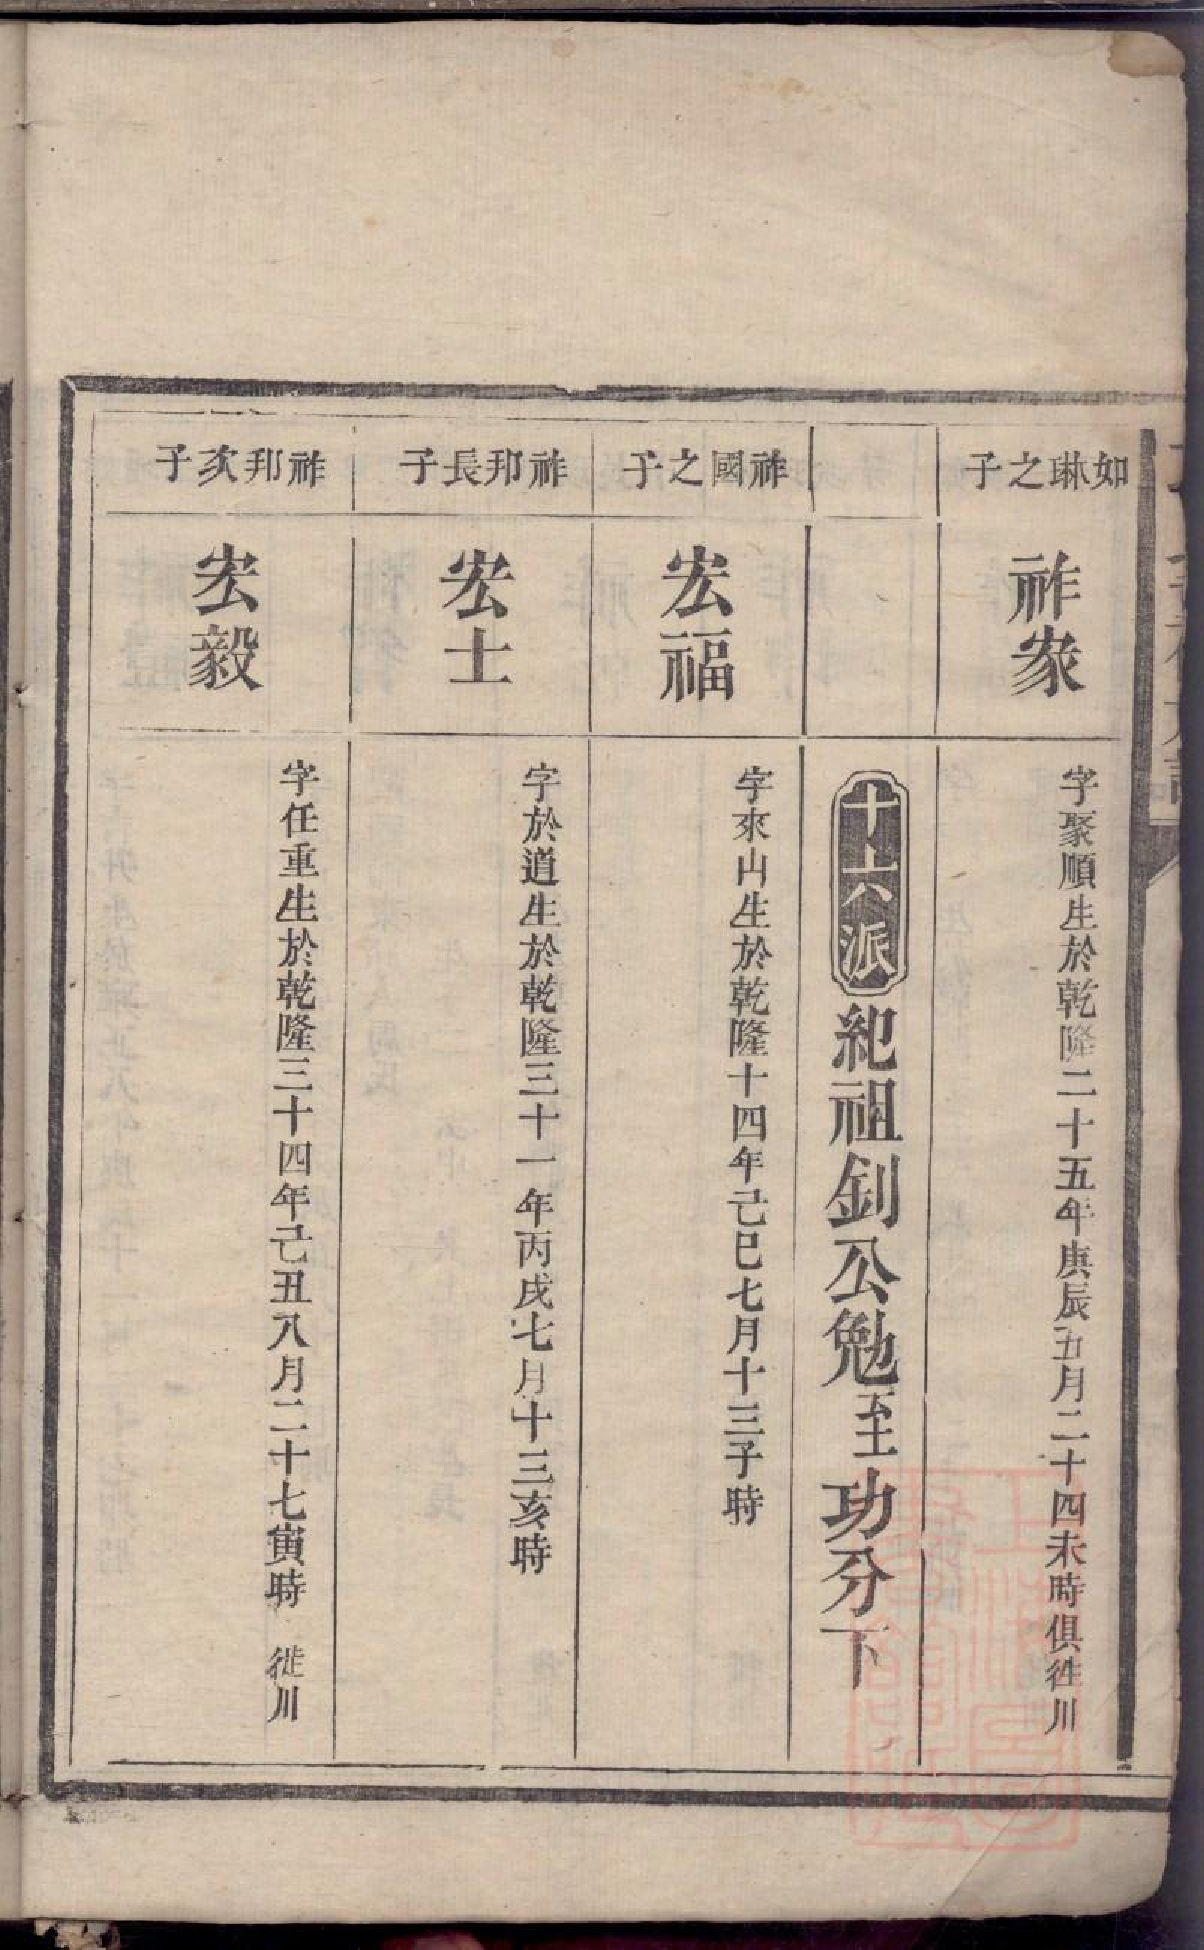 如琳之子
祚象
字聚順生於乾隆二十五年庚辰五月二十四未時俱徃川
十六派
紀祖釗公勉至功分下
祚國之子
宏福
字來山生於乾隆十四年己巳七月十三子時
祚邦長子
宏士
字於道生於乾隆三十一年丙戌七月十三亥時
祚邦次子
宏毅
字任重生於乾隆三十四年己丑八月二十七寅時 徙川